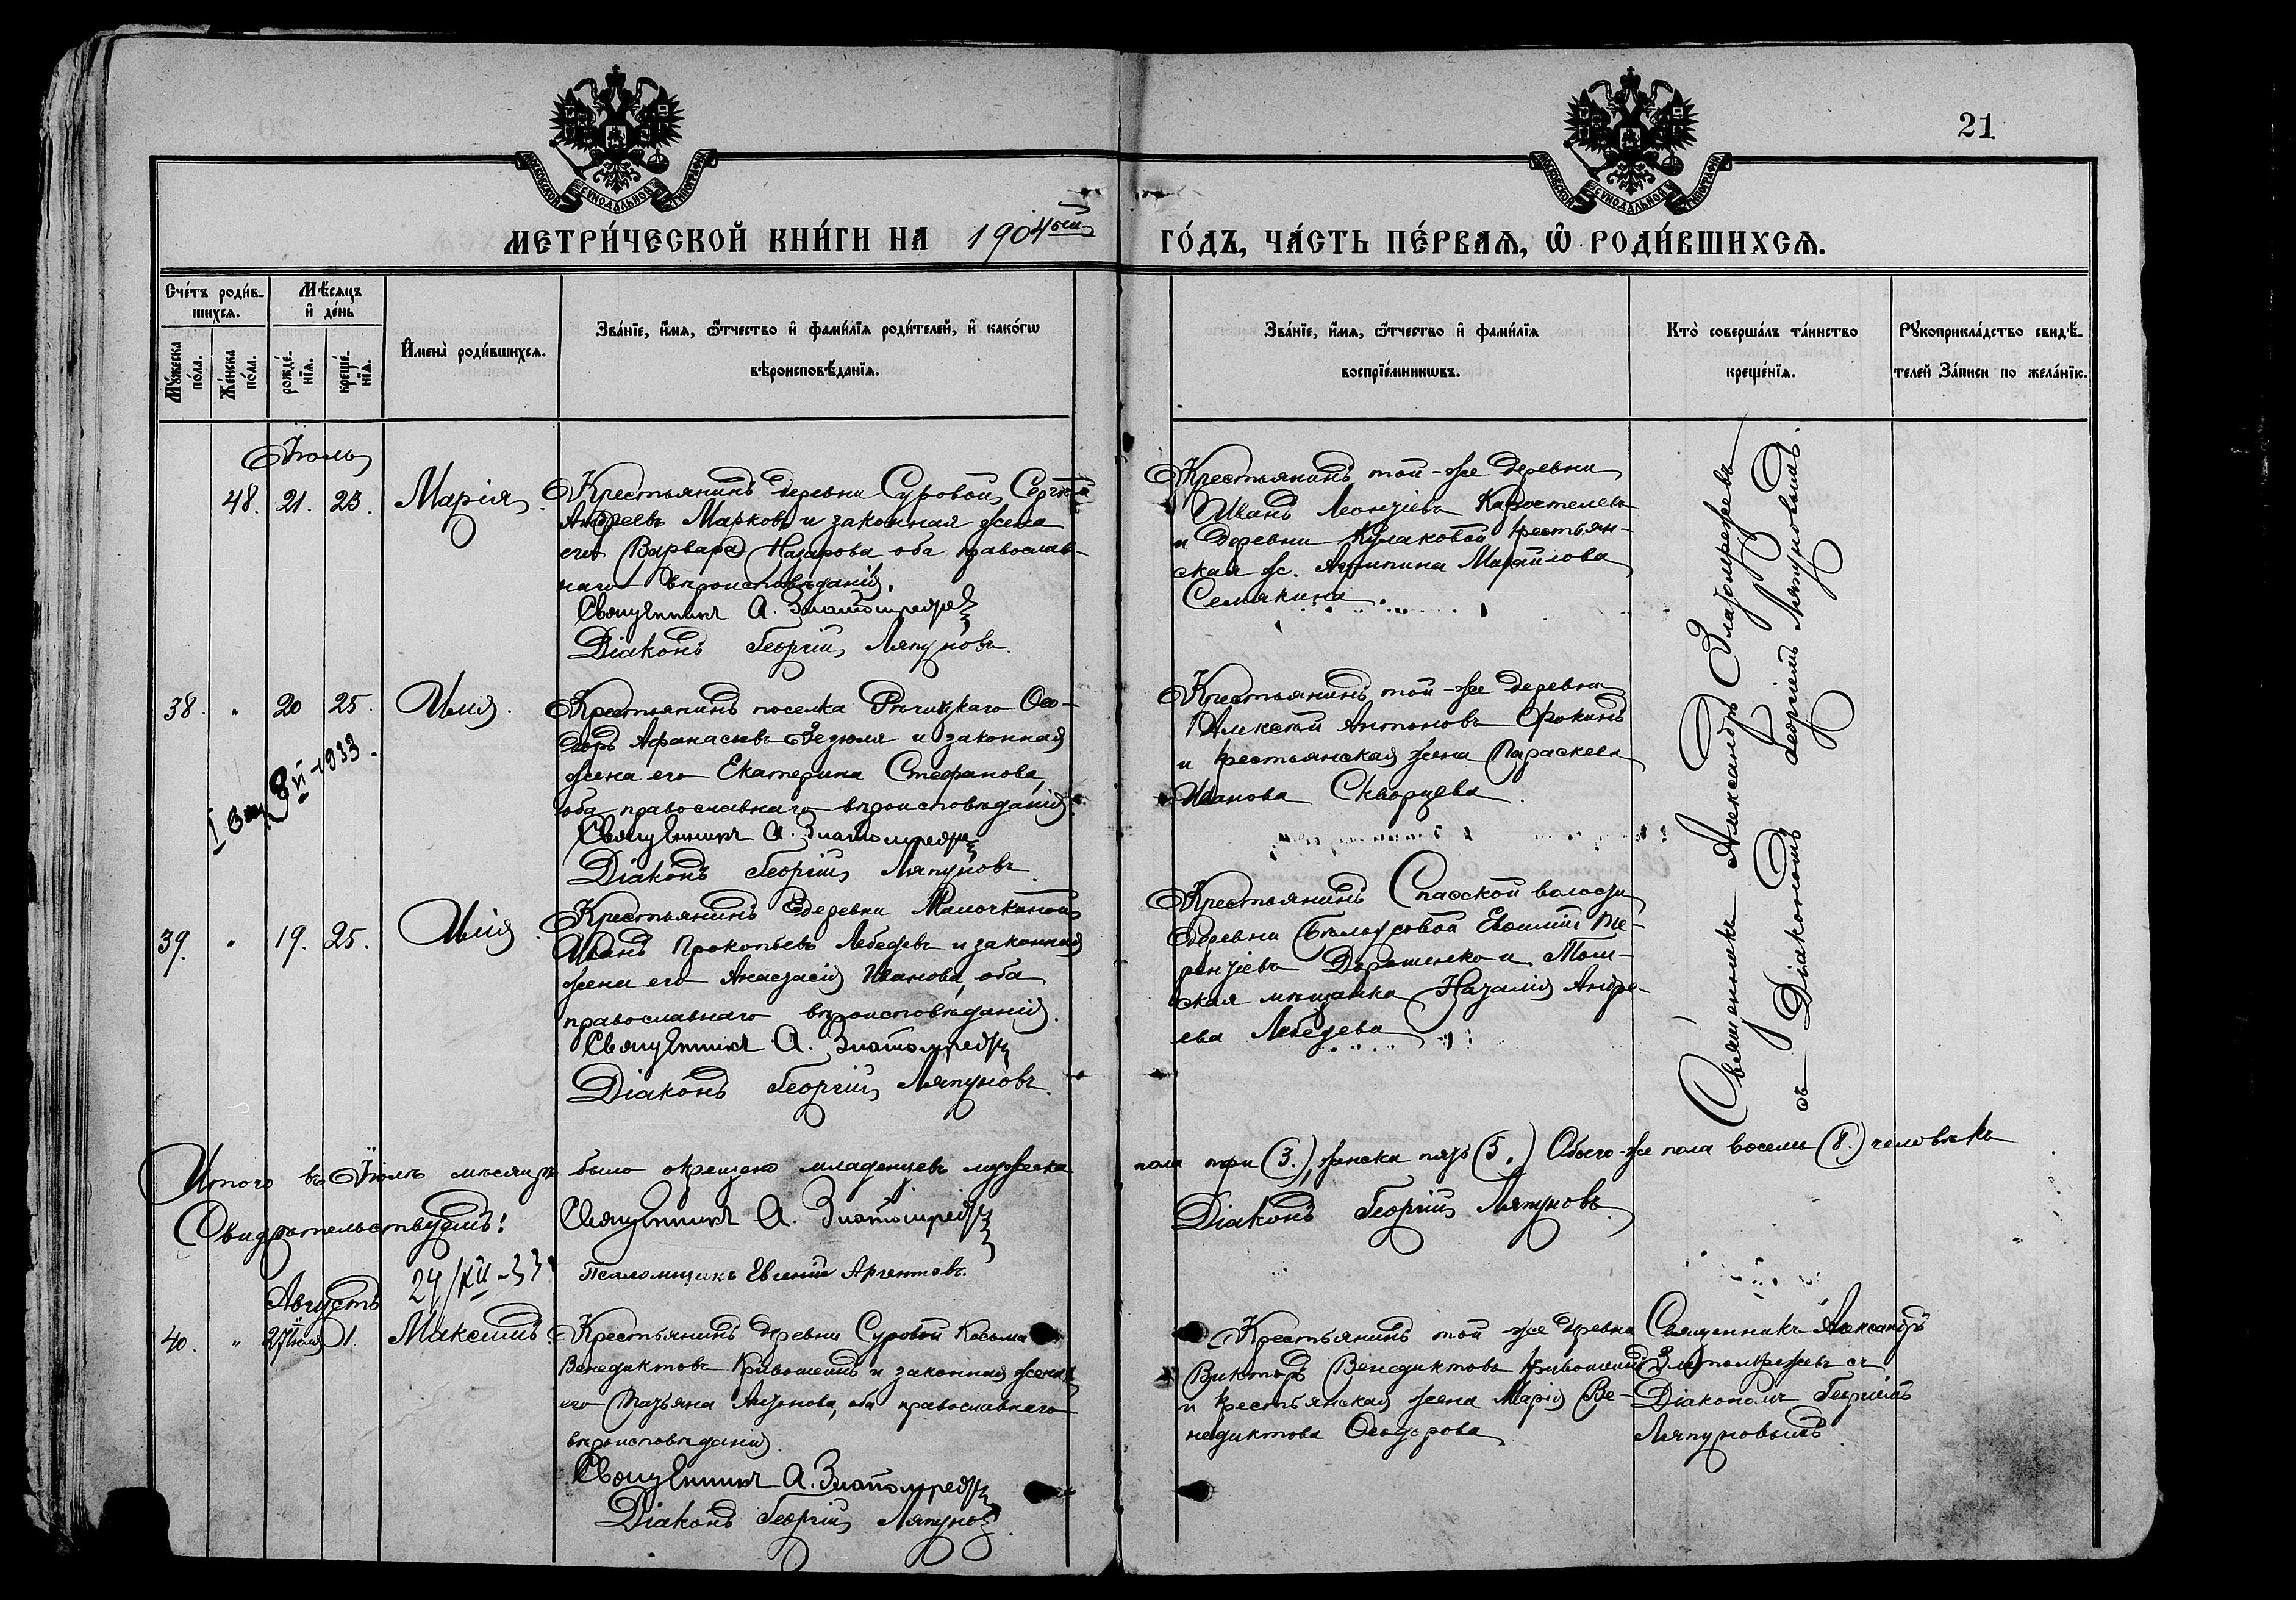 21
МОСКОВСКОЙ СУНОДАЛЬНОЙ ТИПОГРАФІИ
МОСКОВСКОЙ СУНОДАЛЬНОЙ ТИПОГРАФІИ
МЕТРИ́ЧЕСКОЙ КНИ́ГИ НА 1904ый ГО́ДЪ, ЧА́СТЬ ПЕ́РВАѦ, Ѡ҆ РОДИ́ВШИХСѦ.
Сче́тъ роди́в-
шихсѧ.
Мꙋ́жеска по́ла.
Же́нска по́ла.
Мѣ́сѧцъ
и҆ де́нь
рожде́-
нїѧ.
креще́-
нїѧ.
И҆мена̀ роди́вшихсѧ.
Зва́нїе, и҆́мѧ, ѻ҆́тчество и҆ фами́лїѧ роди́телей, и҆ како́гѡ
вѣроисповѣ́данїѧ.
Зва́нїе, и҆́мѧ, ѻ҆́тчество и҆ фами́лїѧ
воспрїе́мникѡвъ.
Кто̀ соверша́лъ та́инство
креще́нїѧ.
Рꙋкоприкла́дство свидѣ́-
телей За́писи по жела́нїю.
Іюль
48. 21. 25. Марія.
Крестьянинъ деревни Суровой, Сергѣй
Андреевъ Марковъ и законная жена
его Варвара Назарова оба православ-
наго вѣроисповѣданія.
Священникъ А.
Діаконъ Георгій Ляпуновъ.
Крестьянинъ той-же деревни
Иванъ Леонтіевъ Коростелевъ
и деревни Кулаковой крестьян-
ская ж. Агрипина Михайлова
Семакина.
Священникъ Александръ Златомрежевъ
съ Діакономъ Георгіемъ Ляпуновымъ.
38. " 20 25. Илія.
Крестьянинъ поселка Рѣчицкаго Ѳео-
доръ Афанасьевъ и законная
жена его Екатерина Стефанова,
оба православнаго вѣроисповѣданія.
Священникъ А.
Діаконъ Георгій Ляпуновъ
Крестьянинъ той-же деревни
Алексѣй Антоновъ Фокинъ
и крестьянская жена Параскева
Иванова Скворцева.
8 VI-1933.
39. " 19. 25. Илія.
Крестьянинъ деревни
Иванъ Прокопьевъ Лебедевъ и законная
жена его Анастасія Иванова, оба
православнаго вѣроисповѣданія.
Священникъ А.
Діаконъ Георгій Ляпуновъ.
Крестьянинъ Спасской волости
деревни Бѣлоусовой Евѳимій Те-
рентіевъ Дорошенко и Том-
ская мѣщанка Наталія Андре-
ева Лебедева
Итого въ Іюлѣ мѣсяцѣ было окрещено младенцевъ мужеска пола три (3.), женска пять (5.) Обоего-же пола восемь (8.) человѣкъ
Свидѣтельствуемъ: Священникъ А. Діаконъ Георгій Ляпуновъ
Псаломщикъ Евгеній Аргентовъ.
24/XII-33
Августъ
40. " 27 Іюля 1. Максимъ.
Крестьянинъ деревни Суровой Косьма
Венедиктовъ Кривошеинъ и законная жена
его Татьяна Антонова, оба православнаго
вѣроисповѣданія.
Священникъ А.
Діаконъ Георгій Ляпуновъ.
Крестьянинъ той же деревни
Викторъ Венедиктовъ Кривошеинъ
и крестьянская жена Марія Ве-
недиктова Ѳеодорова
Священникъ Александръ
Златомрежевъ съ
Діакономъ Георгіемъ
Ляпуновымъ.